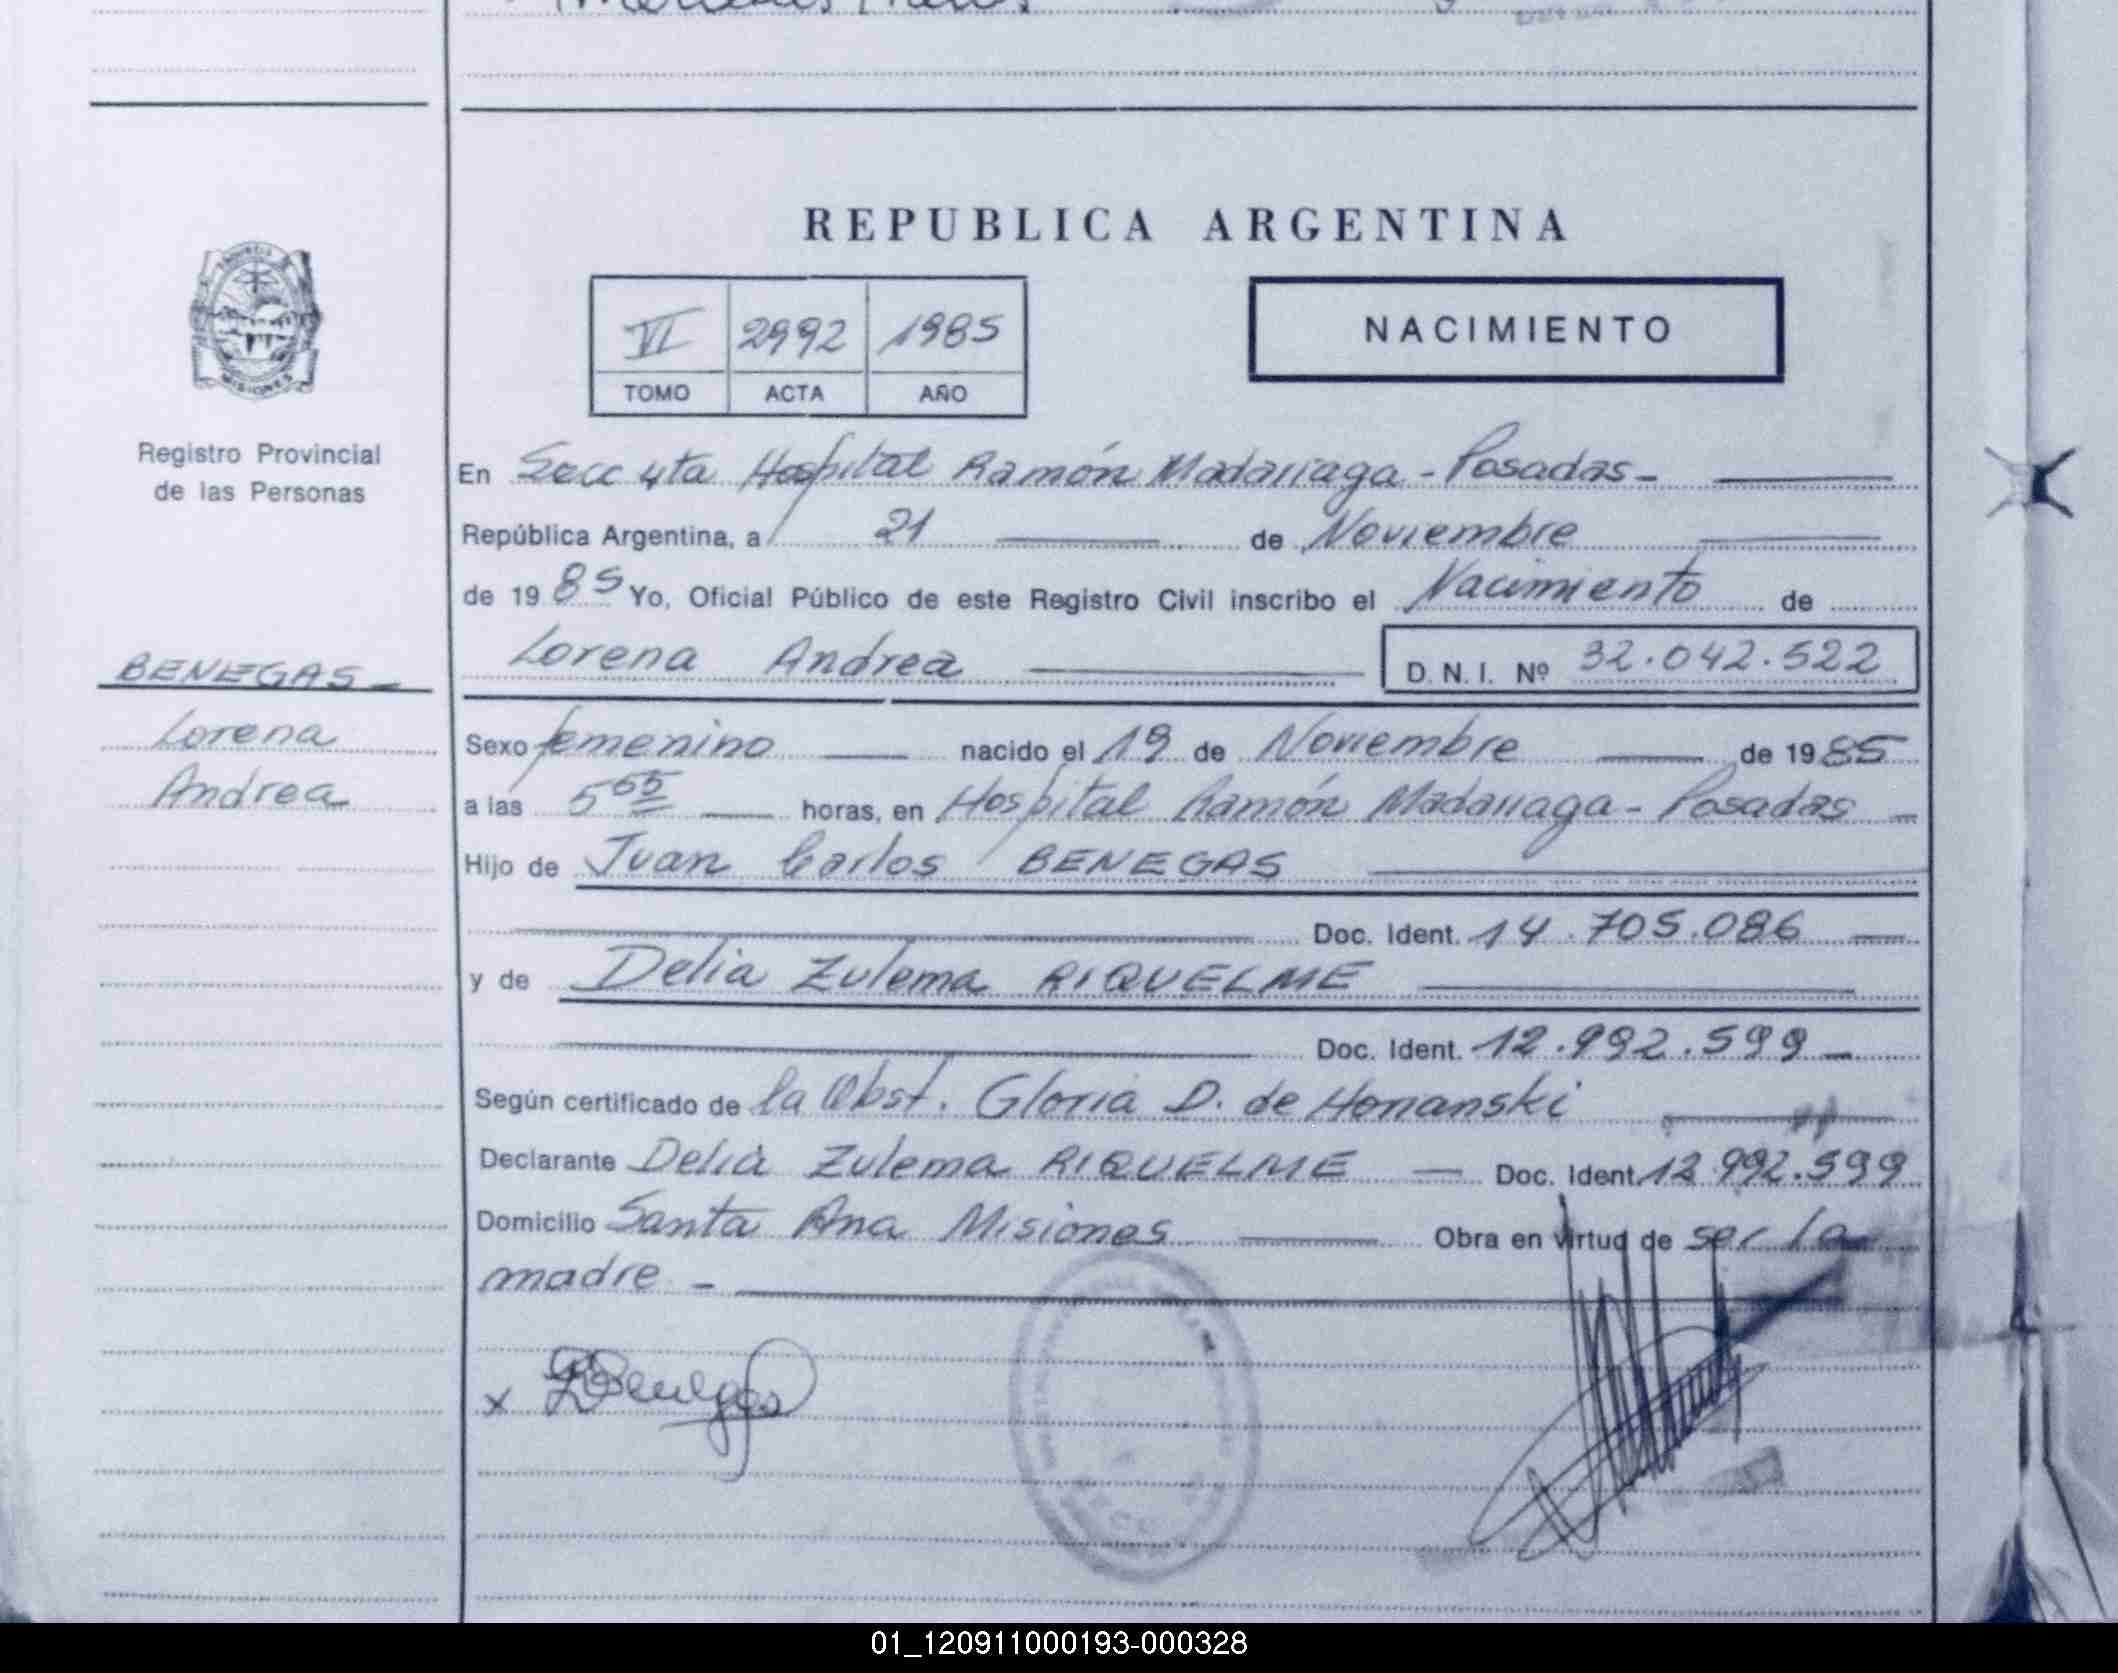 REPUBLICA ARGENTINA
VI 2992 1985
TOMO ACTA AÑO
NACIMIENTO
MISIONES
Registro Provincial
de las Personas
BENEGAS -
Lorena
Andrea
En Secc 4ta Hospital Ramón Madariaga - Posadas -
República Argentina, a 21 de Noviembre
de 1985 Yo, Oficial Público de este Registro Civil inscribo el Nacimiento de
Lorena Andrea D. N. I. Nº 32.042.522
Sexo femenino nacido el 19 de Noviembre de 1985
a las horas, en Hospital Ramón Madariaga - Posadas -
Hijo de Juan Carlos BENEGAS
Doc. Ident. 14.705.086 -
y de Delia Zulema RIQUELME
Doc. Ident. 12.992.599 -
Según certificado de la Obst. Gloria D. de Honanski
Declarante Delia Zulema RIQUELME - Doc. Ident. 12.992.599
Domicilio Santa Ana Misiones Obra en virtud de ser la
madre -
x Benegas
01_120911000193-000328